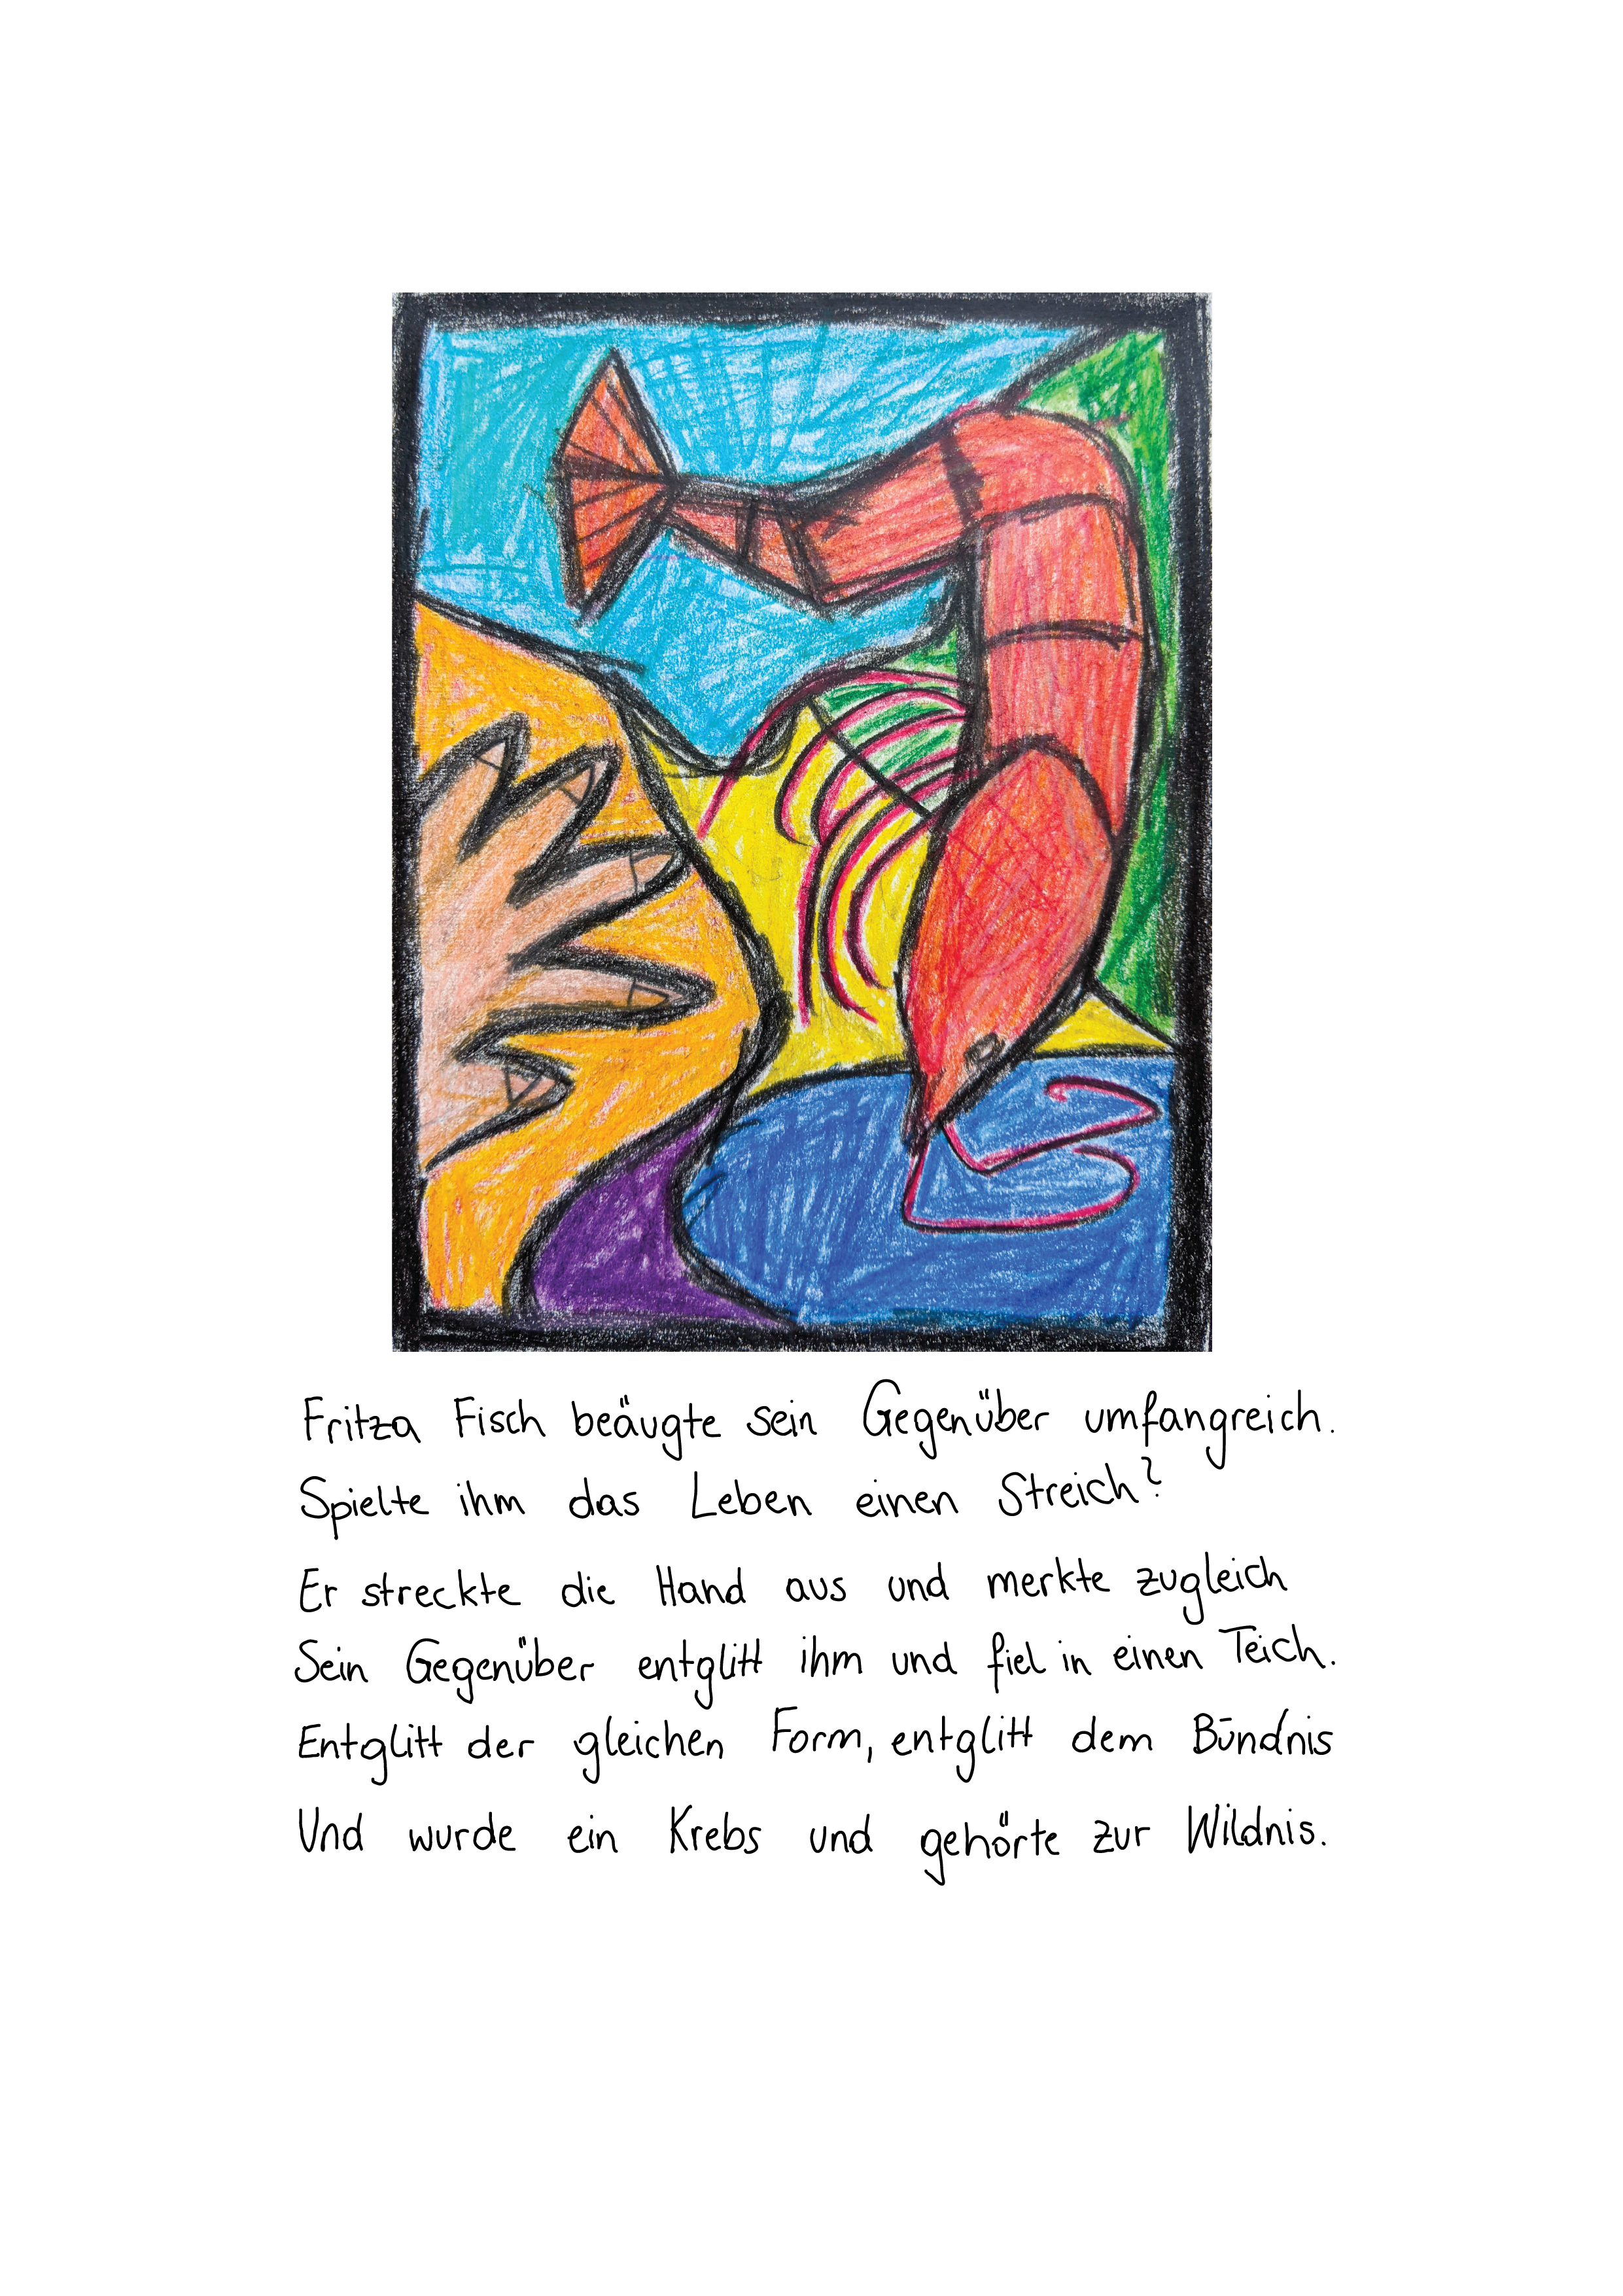 Fritza Fisch beäugte sein Gegenüber umfangreich.
Spielte ihm das Leben einen Streich?
Er streckte die Hand aus und merkte zugleich
Sein Gegenüber entglitt ihm und fiel in einen Teich.
Entglitt der gleichen Form, entglitt dem Bündnis
Und wurde ein Krebs und gehörte zur Wildnis.